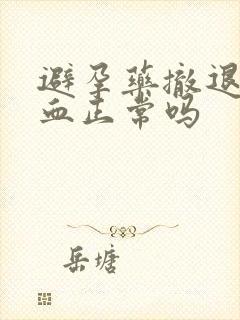 避孕药撤退
血正常吗
岳塘